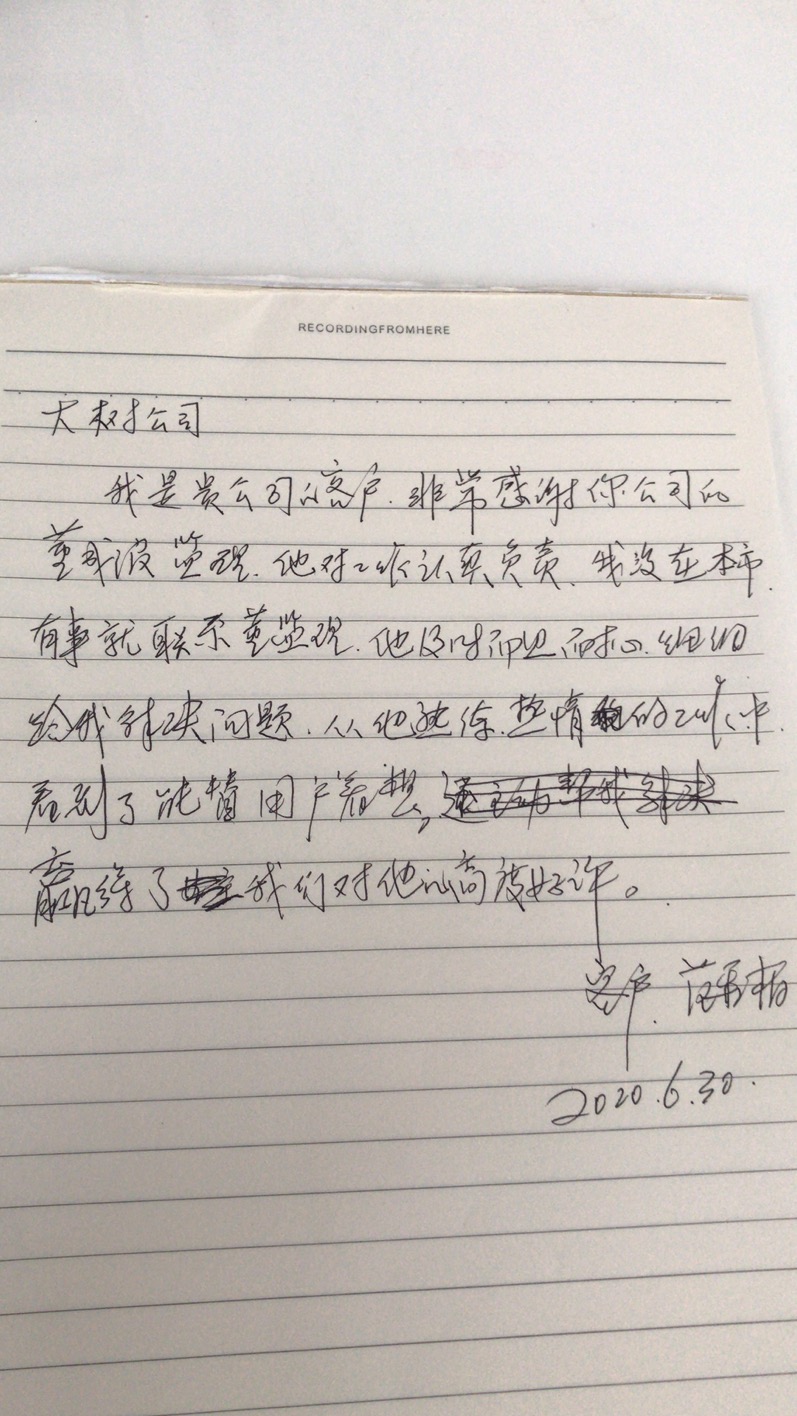 RECORDINGFROMHERE
大树公司
我是贵公司的客户.非常感谢你公司的
董成波监理.他对工作认真负责、我没在本市.
有事就联系董监理.他及时而且耐心.细细
给我解决问题.从他熟练.热情的工作中.
看到了能替用户着想,
赢得了我们对他的高度好评。
客户.范
2020.6.30.